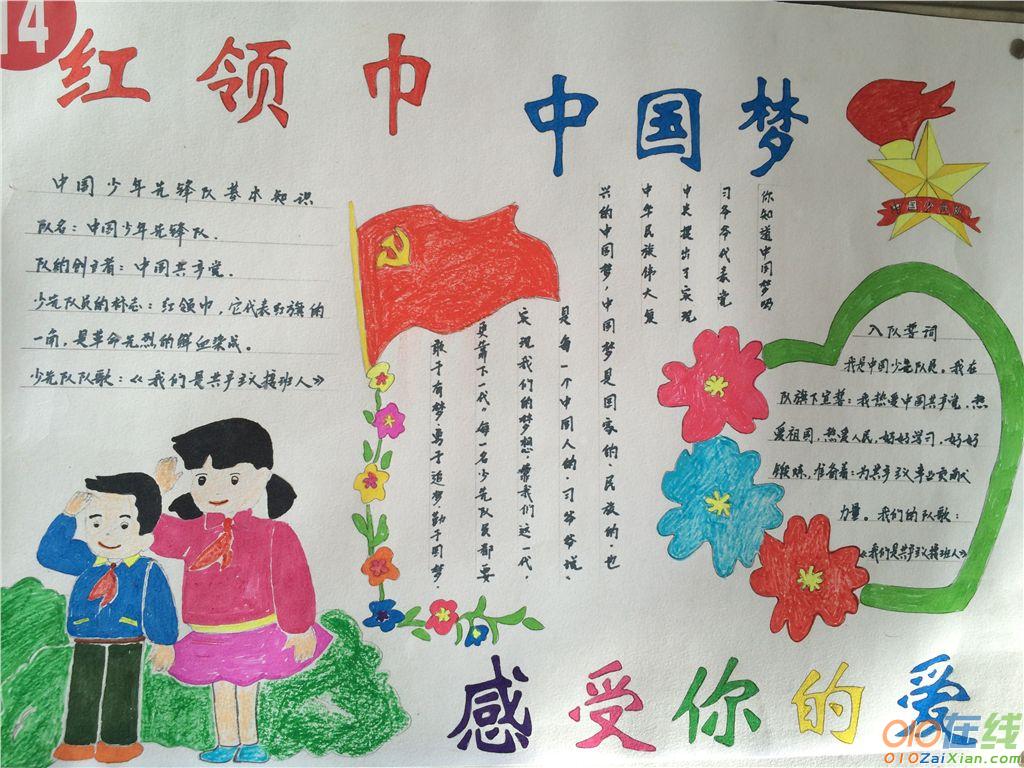 4
红领巾
中国梦
中国少年先锋队基本知识
队名：中国少年先锋队.
队的创立者：中国共产党.
少先队员的标志：红领巾，它代表红旗的
一角，是革命先烈的鲜血染成。
少先队队歌：《我们是共产主义接班人》
你知道中国梦吗
习爷爷代表党
中央提出了实现
中华民族伟大复
兴的中国梦，中国梦是国家的、民族的、也
是每一个中国人的。习爷爷说：
实现我们的梦想，靠我们这一代，
更靠下一代"每一名少先队员都要
敢于有梦，勇于追梦，勤于圆梦.
中国少先队
入队誓词
我是中国少先队员。我在
队旗下宣誓：我热爱中国共产党，热
爱祖国，热爱人民，好好学习，好好
锻炼，准备着：为共产主义事业贡献
力量。我们的队歌：
《我们是共产主义接班人》
感受你的爱
010在线
010ZaiXian.com